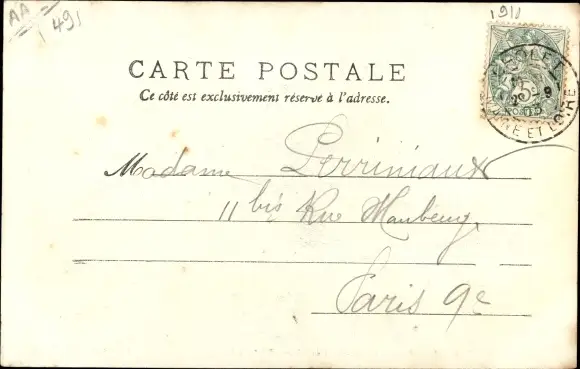 AA
491
1911
CARTE POSTALE
Ce côté est exclusivement réservé à l'adresse.
5c
ET LOIRE
Madame Perriniaux
11 bis Rue Maubeuge
Paris 9e